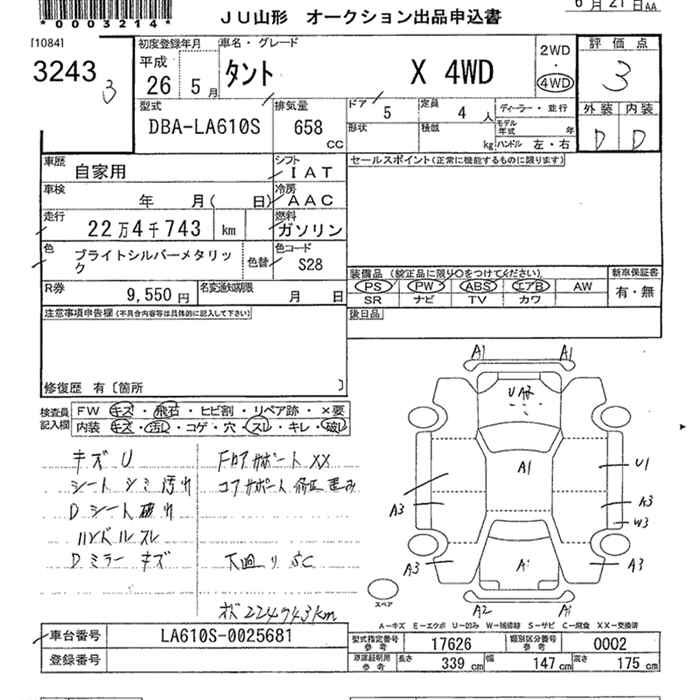 *0003214*
JU山形 オークション出品申込書
6月21日AA
[1084]
3243 3
初度登録年月 平成 26年 5月
車名・グレード
タント X 4WD
2WD ・ 4WD
評価点 3
型式 DBA-LA610S
排気量 658 CC
ドア 5
定員 4人
ディーラー・並行
形状
積載 kg
モデル年式 年
ハンドル 左・右
外装 D
内装 D
車歴 自家用
シフト IAT
セールスポイント(正常に機能するものに限ります)
車検 年 月( 日)
冷房 AAC
走行 22万4千743 km
燃料 ガソリン
色 ブライトシルバーメタリック
色替
色コード S28
装備品(純正品に限り○をつけてください)
新車保証書
PS PW ABS エアB AW
有・無
SR ナビ TV カワ
R券 9,550円
名変通知期限 月 日
後日品
注意事項申告欄(不具合内容等は具体的に記入して下さい)
修復歴 有〔箇所 〕
検査員記入欄
FW キズ・飛石・ヒビ割・リペア跡・×要
内装 キズ・汚れ・コゲ・穴・スレ・キレ・破れ
キズ U
シート シミ 汚れ
D シート 破れ
ハンドル スレ
D ミラー キズ
Fロアサポート XX
コアサポート 修正 歪み
下廻り SC
オド 224743km
A1 A1
U A2
A1
U1
A3
A3
W3
A3
A1
A3
スペア
A2 A1
A-キズ E-エクボ U-凹み W-補修跡 S-サビ C-腐食 XX-交換済
車台番号 LA610S-0025681
登録番号
型式指定番号 参考 17626
類別区分番号 参考 0002
車庫証明用 参考 長さ 339cm 幅 147cm 高さ 175cm